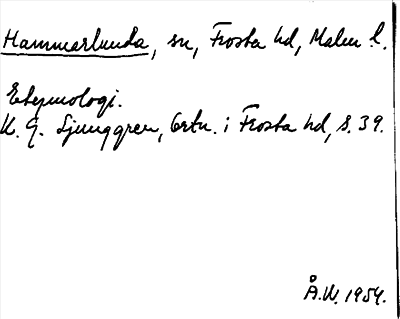 Hammarlunda, sn, Frosta hd, Malm. l.
Etymologi.
K. G. Ljunggren, Ortn. i Frosta hd, s. 39.
Å.W. 1954.